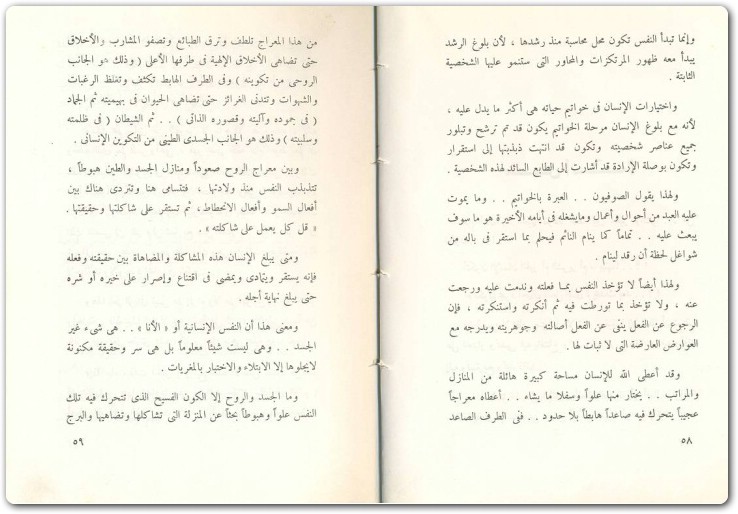 وإنما تبدأ النفس تكون محل محاسبة منذ رشدها ، لأن بلوغ الرشد
يبدأ معه ظهور المرتكزات والمحاور التى ستنمو عليها الشخصية
الثابتة .
واختيارات الإنسان فى خواتيم حياته هى أكثر ما يدل عليه ،
لأنه مع بلوغ الإنسان مرحلة الخواتيم يكون قد تم ترشح وتبلور
جميع عناصر شخصيته وتكون قد انتهت ذبذبتها إلى استقرار
وتكون بوصلة الإرادة قد أشارت إلى الطابع السائد لهذه الشخصية .
ولهذا يقول الصوفيون . . العبرة بالخواتيم . . وما يموت
عليه العبد من أحوال وأعمال ومايشغله فى أيامه الأخيرة هو ما سوف
يبعث عليه . . تماماً كما ينام النائم فيحلم بما استقر فى باله من
شواغل لحظة أن رقد لينام .
ولهذا أيضاً لا تؤخذ النفس بمـا فعلته وندمت عليه ورجعت
عنه ، ولا تؤخذ بما تورطت فيه ثم أنكرته واستنكرته ، فإن
الرجوع عن الفعل ينفى عن الفعل أصالته وجوهريته ويدرجه مع
العوارض العارضة التى لا ثبات لها .
وقد أعطى الله للإنسان مساحة كبيرة هائلة من المنازل
والمراتب . . يختار منها علواً وسفلا ما يشاء . . أعطاه معراجاً
عجيباً يتحرك فيه صاعداً هابطاً بلا حدود . . ففى الطرف الصاعد
٥٨
من هذا المعراج تلطف وترق الطبائع وتصفو المشارب والأخلاق
حتى تضاهى الأخلاق الإلهية فى طرفها الأعلى ( وذلك هو الجانب
الروحى من تكوينه ) وفى الطرف الهابط تكثف وتغلظ الرغبات
والشهوات وتتدنى الغرائز حتى تضاهى الحيوان فى بهيميته ثم الجماد
( فى جموده وآليته وقصوره الذاتى ) . . ثم الشيطان ( فى ظلمته
وسلبيته ) وذلك هو الجانب الجسدى الطينى من التكوين الإنسانى .
وبين معراج الروح صعوداً ومنازل الجسد والطين هبوطاً ،
تتذبذب النفس منذ ولادتها ، فتتسامى هنا وتتردى هناك بين
أفعال السمو وأفعال الانحطاط ، ثم تستقر على شاكلتها وحقيقتها .
« قل كل يعمل على شاكلته » .
ومتى يبلغ الإنسان هذه المشاكلة والمضاهاة بين حقيقته وفعله
فإنه يستقر ويتمادى ويمضى فى اقتناع وإصرار على خيره أو شره
حتى يبلغ نهاية أجله .
ومعنى هذا أن النفس الإنسانية أو « الأنا » . . هى شىء غير
الجسد . . وهى ليست شيئاً معلوماً بل هى سر وحقيقة مكنونة
لايجلوها إلا الابتلاء والاختبار بالمغريات .
وما الجسد والروح إلا الكون الفسيح الذى تتحرك فيه تلك
النفس علواً وهبوطاً بحثاً عن المنزلة التى تشاكلها وتضاهيها والبرج
٥٩